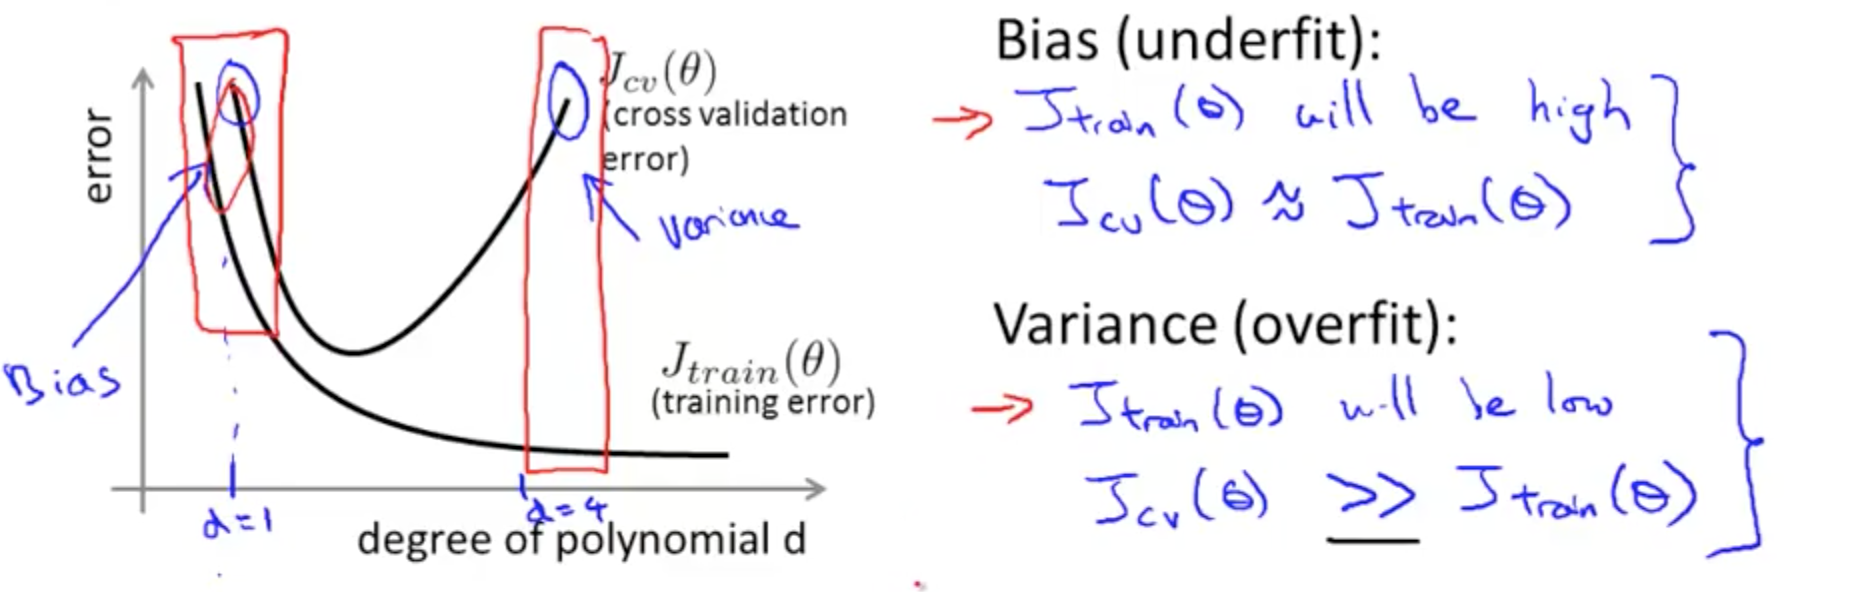 error
J_cv(θ)
(cross validation
error)
variance
Bias
J_train(θ)
(training error)
d=1
d=4
degree of polynomial d
Bias (underfit):
→ J_train(θ) will be high
J_cv(θ) ≈ J_train(θ)
Variance (overfit):
→ J_train(θ) will be low
J_cv(θ) >> J_train(θ)